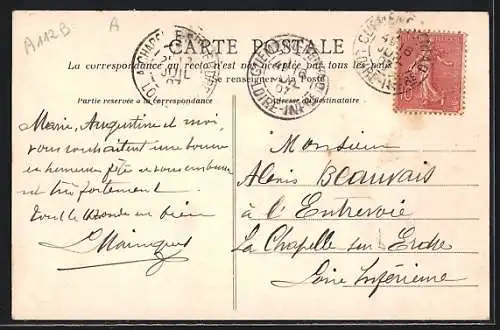 A112B
A
CARTE POSTALE
La correspondance au recto n'est pas acceptée par tous les pays
se renseigner à la Poste
Partie réservée à la correspondance
Adresse du destinataire
Marie, Augustine et moi,
vous souhaitent une bonne
et heureuse fête et vous embrasse
et très fortement
Tout le monde va bien
Monsieur
Alexis Beauvais
à l'Entrevoie
La Chapelle sur Erdre
Loire Inférieure
LOIRE-INF